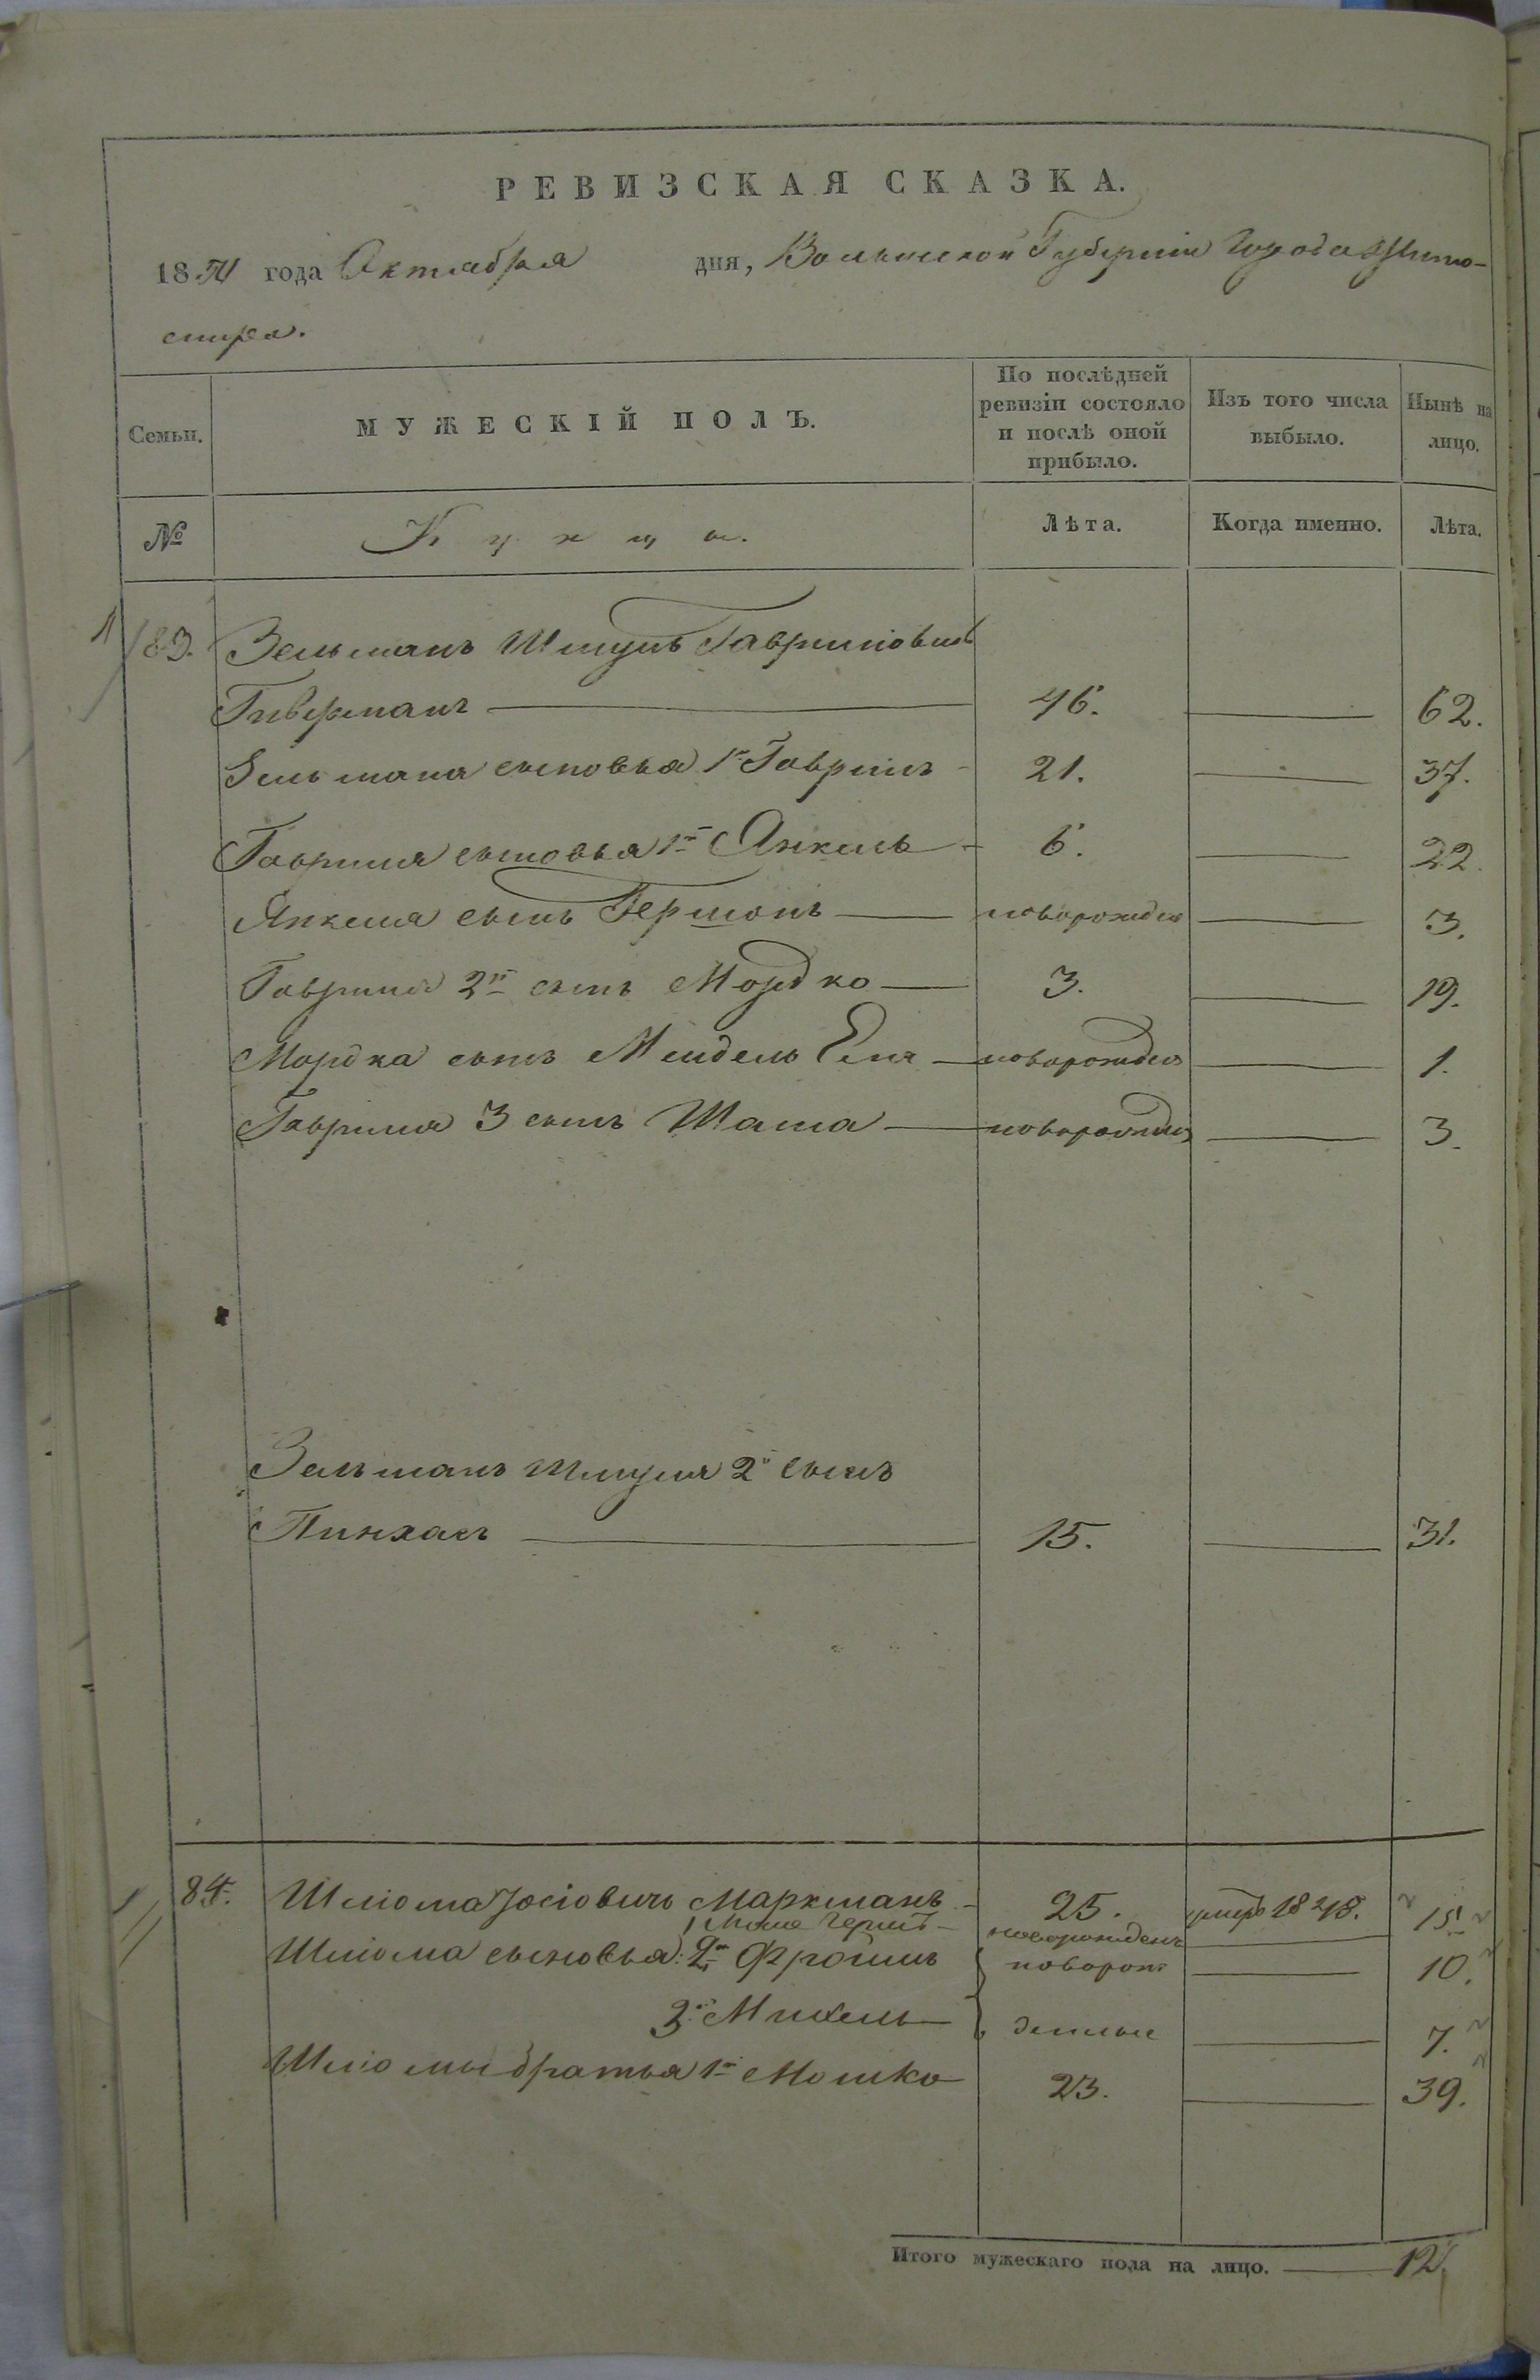 РЕВИЗСКАЯ СКАЗКА.
18 50 года Октября дня, Волынской Губерніи Города Жито-
мира.
Семьи. МУЖЕСКІЙ ПОЛЪ. По послѣдней ревизіи состояло и послѣ оной прибыло. Изъ того числа выбыло. Нынѣ на лицо.
№ Купцы. Лѣта. Когда именно. Лѣта.
83. Зельманъ Шмуль Гавриловичъ
Гиберманъ 46. 62.
Зельмана сыновья 1й Гаврилъ 21. 37.
Гаврила сыновья 1й Янкель 6. 22.
Янкеля сынъ Гершонъ новорожден 3.
Гаврила 2й сынъ Мордко 3. 19.
Мордка сынъ Мендель новорожден 1.
Гаврила 3 сынъ новорожден 3.
Зельманъ Шмуля 2й сынъ
Пинхасъ 15. 31.
84. Шліома Іосіовичъ Маркманъ 25. умеръ 1848.
новорожденъ 15
Шліома сыновья: 2й Фроимъ новорож 10.
3й Михель денные 7.
Шліомы братья 1й Мошко 23. 39.
Итого мужескаго пола на лицо. 12.